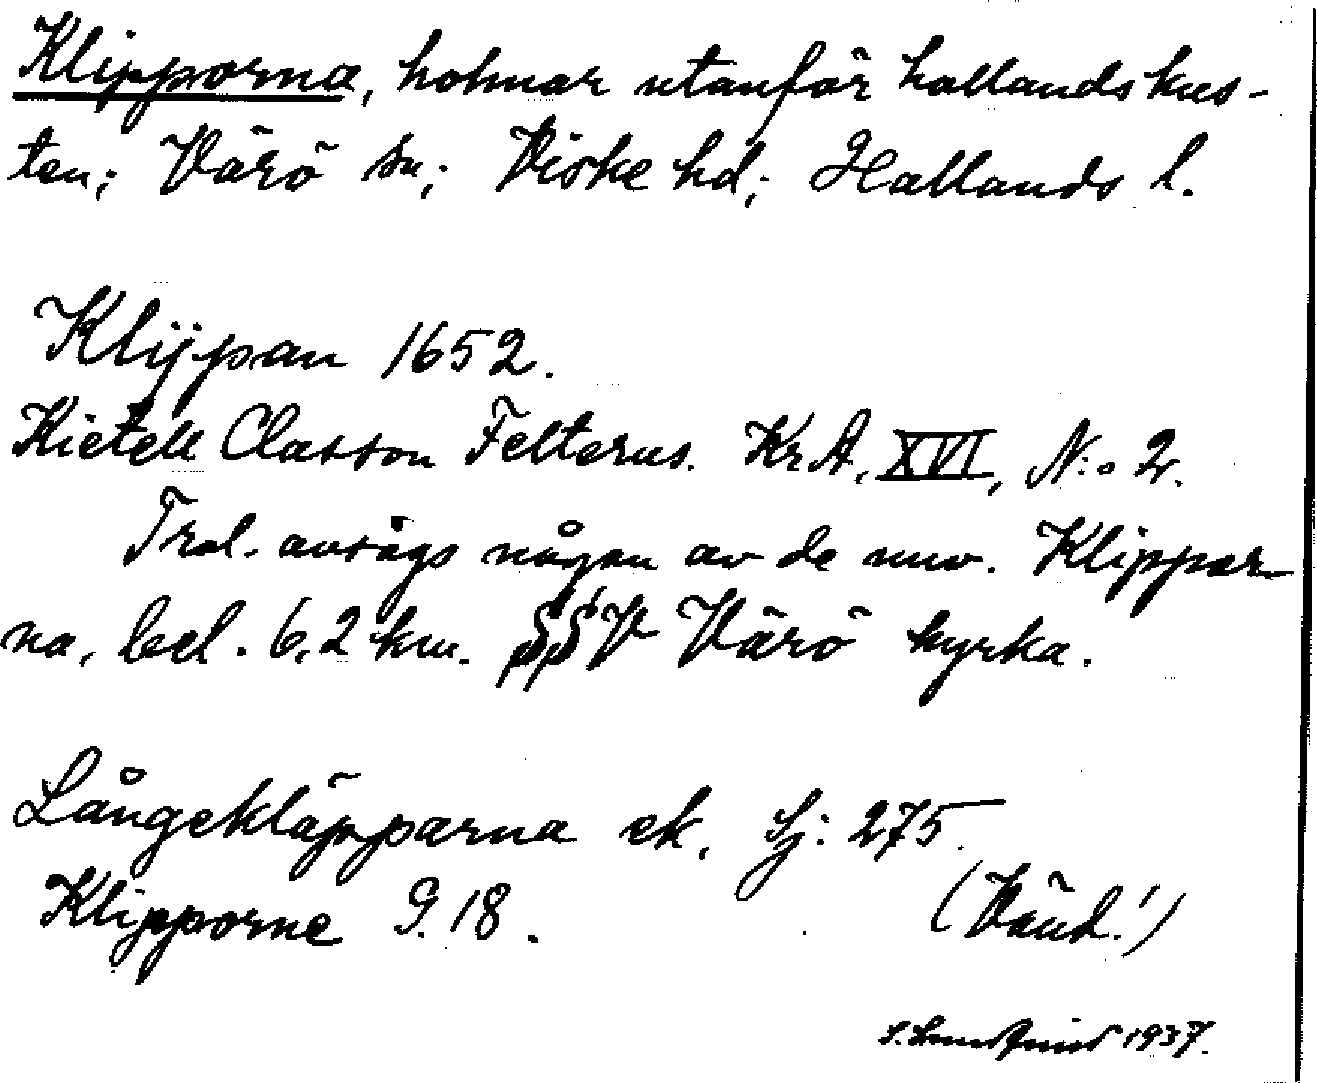 Klipporna, holmar utanför hallandskus-
ten; Värö sn; Viske hd; Hallands l.
Klijpan 1652.
Kietell Classon Felterus. KrA, XVI, N:o 2.
Trol. avsågs någon av de nuv. Klippor-
na, bel. 6,2 km. V Värö kyrka.
Långekläpparna ek. Sj: 275.
Klipporne G. 18.
(Vänd!)
1937.